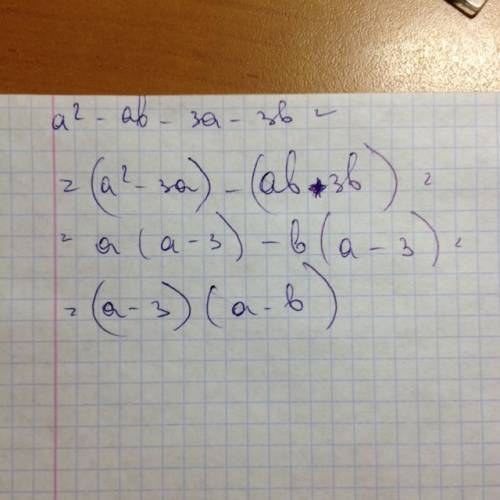 a² - ab - 3a - 3b =
= (a² - 3a) - (ab + 3b) =
= a (a - 3) - b (a - 3) =
= (a - 3) (a - b)